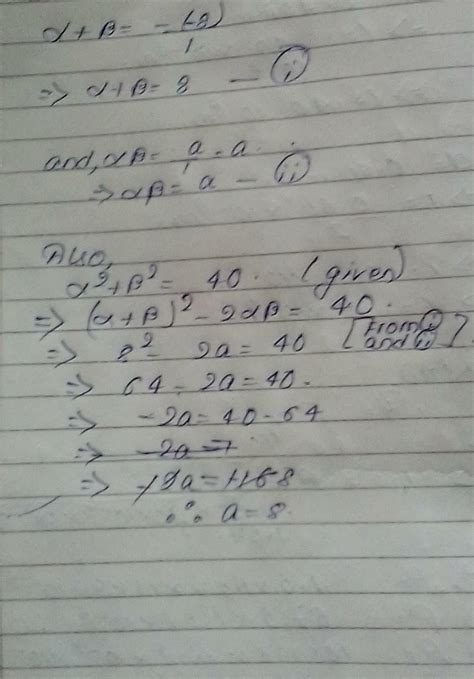 α + β = -(-8)/1
=> α + β = 8 — (i)
and, αβ = a/1 = a.
=> αβ = a — (ii)
Also,
α² + β² = 40. (given)
=> (α + β)² - 2αβ = 40.
=> 8² - 2a = 40 [from (i) and (ii)]
=> 64 - 2a = 40.
=> -2a = 40 - 64
=> -2a =
=> -2a =
∴ a = 8.